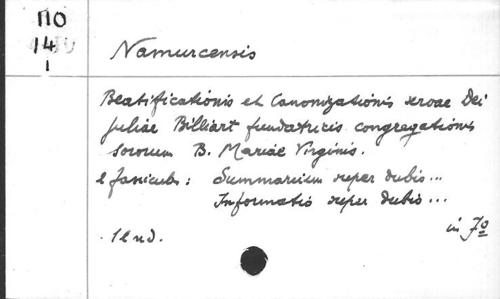 ПО
14
1
Namurcensis
Beatificationis et Canonizationis servae Dei
Juliae Billiart fundatricis congregationis
sororum B. Mariae Virginis.
2 fascicubs: Summarium super dubio...
Informatio super dubio...
in 7º
Sl nd.